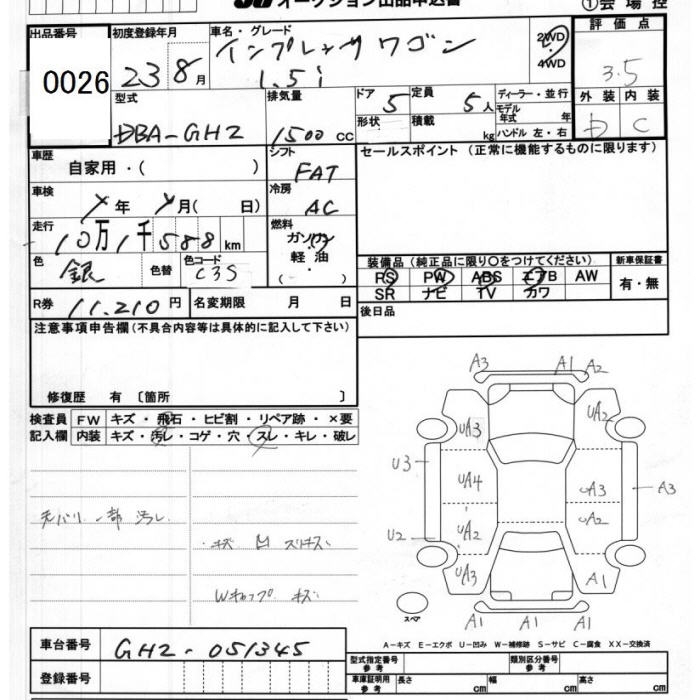 オークション出品申込書
①会場控
出品番号 0026
初度登録年月 23 8月
車名・グレード インプレッサワゴン 1.5i
2WD・4WD
評価点 3.5
型式 DBA-GH2
排気量 1500 CC
ドア 5
形状
定員 5人
積載 kg
ディーラー・並行
モデル年式 年
ハンドル 左・右
外装 D
内装 C
車歴 自家用・( )
シフト FAT
セールスポイント (正常に機能するものに限ります)
車検 年 月( 日)
冷房 AC
走行 10万1千588km
燃料 ガソリン 軽油 ・
色 銀
色替
色コード C3S
装備品 (純正品に限り〇をつけてください)
新車保証書 有・無
RS PW ABS エアB AW
SR ナビ TV カワ
R券 11.210円
名変期限 月 日
後日品
注意事項申告欄(不具合内容等は具体的に記入して下さい)
修復歴 有 〔箇所 〕
検査員記入欄
FW キズ・飛石・ヒビ割・リペア跡・×要
内装 キズ・汚レ・コゲ・穴・スレ・キレ・破レ
一部 汚レ
キズ 凹 スリキズ
Wキャップ キズ
A3 A1 A2
UA3 UA2
U3 UA4 UA3 A3
U2 UA2 UA2
UA3 A1
スペア
A1 A1 A1
A-キズ E-エクボ U-凹み W-補修跡 S-サビ C-腐食 XX-交換済
車台番号 GH2-051345
登録番号
型式指定番号 参考
類別区分番号 参考
車庫証明用 参考 長さ cm 幅 cm 高さ cm